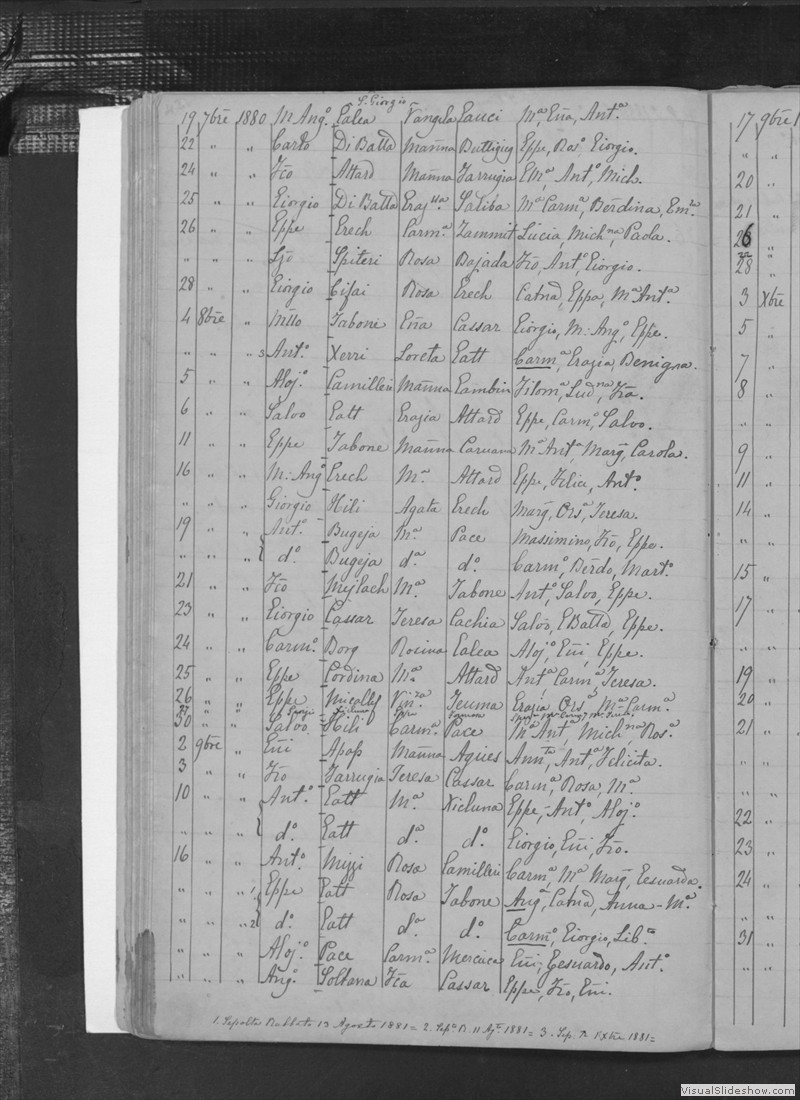 S. Giorgio
19 7bre 1880 M. Ang.o Galea Vangela Gauci M.a Gna, Ant.a
22 " " Carlo Di Batta Manna Buttigieg Gppe, Ros.o Giorgio.
24 " " Fco Attard Manna Farrugia Ant.o, Mich.
25 " " Giorgio Di Batta Saliba M.a Carm.a, Berdina,
26 " " Gppe Grech Carm.a Zammit Lucia, Mich.na, Paola.
" " " Spiteri Rosa Bajada Fco, Ant.o, Giorgio.
28 " " Giorgio Rosa Grech Gppa, M.a Ant.a
4 8bre " Tabone Gna Cassar Giorgio, M: Ang.o, Gppe.
" " " 3 Ant.o Xerri Loreta Gatt Carm.a, Grazia, Benigna.
5 " " Aloj.o Camilleri Manna Gambin Filom.a, Fca.
6 " " Salvo Gatt Grazia Attard Gppe, Carm.o, Salvo.
11 " " Gppe Tabone Manna Caruana M.a Ant.a Marg, Carola.
16 " " M: Ang.o Grech M.a Attard Gppe, Felice, Ant.o
" " " Giorgio Hili Agata Grech Marg, Ors.a, Teresa.
19 " " Ant.o Bugeja M.a Pace Massimino, Fco, Gppe.
" " " d.o Bugeja d.a d.o Carm.o, Berdo, Mart.o
21 " " Fco Mejlach M.a Tabone Ant.o, Salvo, Gppe.
23 " " Giorgio Cassar Teresa Cachia Salvo, GBatta, Gppe.
24 " " Carm.o Borg Rosina Galea Aloj.o, Gni, Gppe.
25 " " Gppe Cordina M.a Attard Ant.a, Carm.a, Teresa.
26 " " Gppe Micallef Vin.za Teuma Grazia, Ors.a, M.a Carm.a
30 " " Salvo Hili Carm.a Pace M.a Ant.a, Mich.na Ros.a
2 9bre " Gni Apap Manna Agius Ant.a, Felicita.
3 " " Fco Farrugia Teresa Cassar Carm.a, Rosa, M.a
10 " " Ant.o Gatt M.a Xicluna Gppe, Ant.o, Aloj.o
" " " d.o Gatt d.a d.o Giorgio, Gni, Fco.
16 " " Ant.o Mizzi Rosa Camilleri Carm.a, M.a Marg, Gesuarda.
" " " 1 Gppe Gatt Rosa Tabone Ang.a, Catna, Anna-M.a
" " " 2 d.o Gatt d.a d.o Carm.o, Giorgio,
" " " Aloj.o Pace Carm.a Mercieca Gni, Gesuardo, Ant.o
" " " Ang.o Soltana Fca Cassar Gppe, Fco, Gni.
1. Sepolta Rabbato 13 Agosto 1881= 2. Sep.a R. 11 Ag.o 1881= 3. Sep. R 1881=
17 9bre
" "
20 "
21 "
26 "
28 "
3 Xbre
5 "
7 "
8 "
9 "
11 "
14 "
" "
15 "
17 "
19 "
20 "
21 "
" "
22 "
23 "
24 "
" "
31 "
" "
VisualSlideshow.com